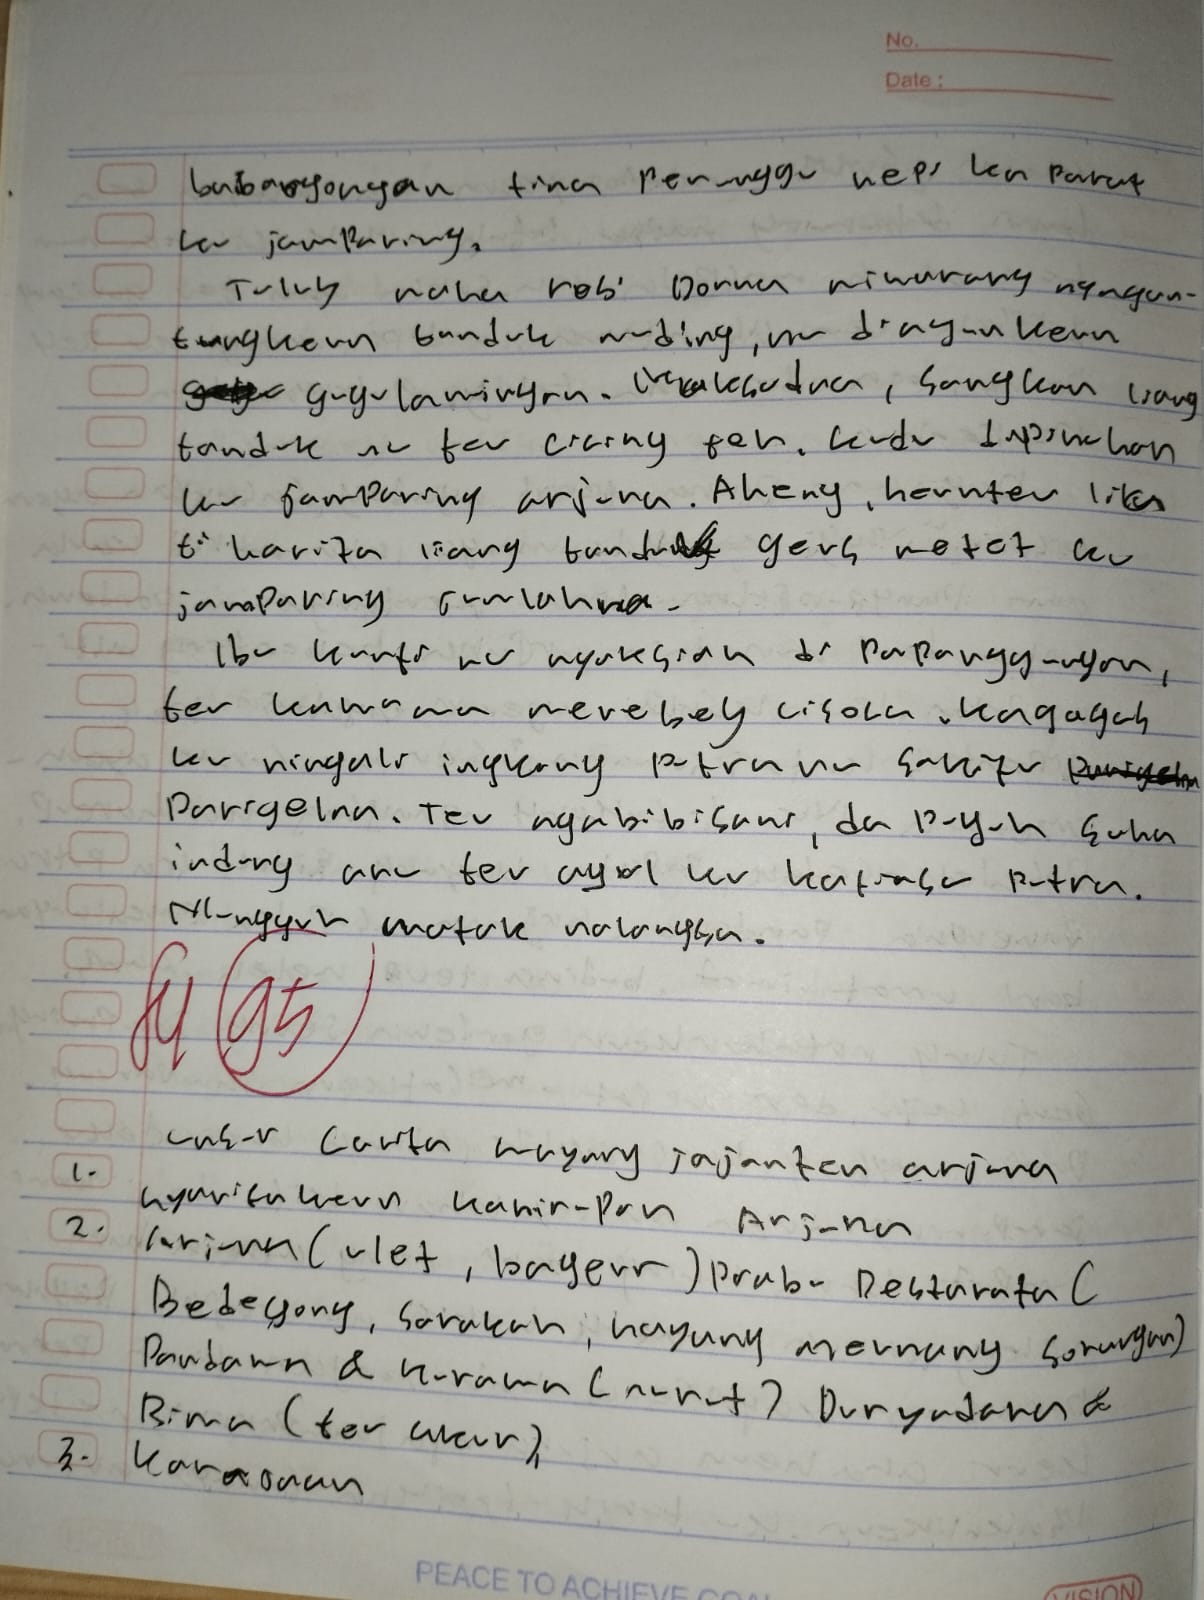 No.
Date :
babarengan tina peninggi nepi ka parat
ku jamparing.
Tuluy naha resi Dorna miwarang ngagan-
tungkeun tanduk munding, nu diayunkeun
gugulawingan. Maksudna, sangkan liang
tanduk nu teu cicing teh. kudu dipinuhan
ku jamparing arjuna. Aheng, henteu lila
ti harita liang tanduk geus metet ku
jamparing
Ibu kunti nu nyaksian di papanggungan,
teu kuwawa merebey cisoca. kagagas
ku ningali ingkang putra nu sakitu
parigelna. Teu ngabibisani, da puguh saha
indung anu teu ku putra.
matak nalangsa.
95
unsur Carita wayang jajaten arjuna
1. nyaritakeun kahirupan Arjuna
2. Arjuna (ulet, bageur) prabu Destarata (
Bedegong, sarakah, hayang meunang sorangan)
Pandawa & kurawa (nurut) Duryudana &
Bima (teu akur)
3. Karajaan
PEACE TO ACHIEVE
VISION